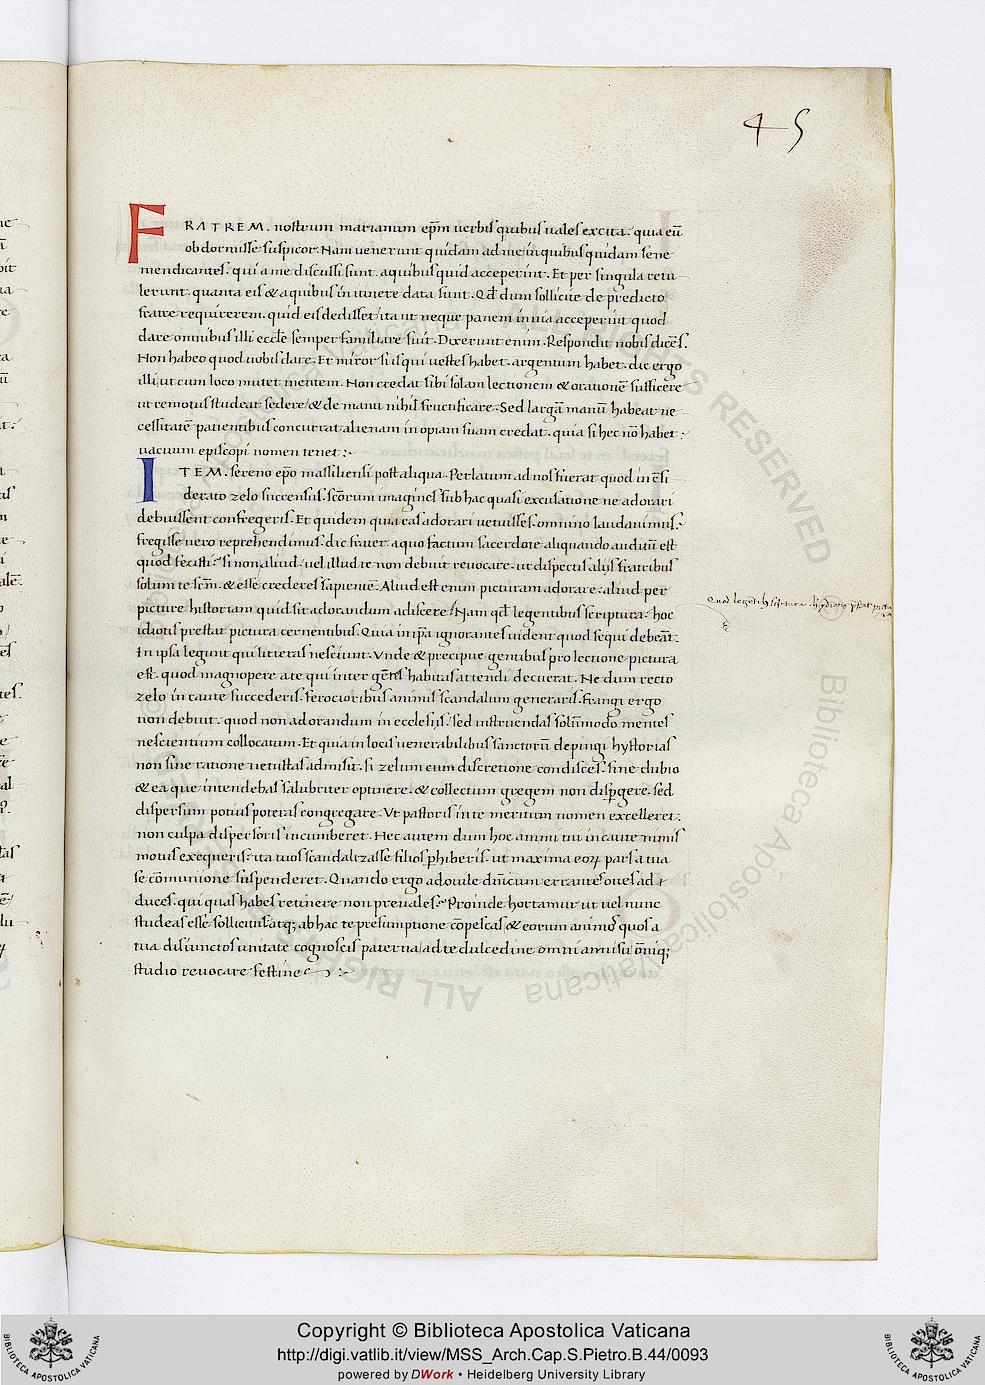 45
FRATREM. nostrum marianum ep̄m uerbis quibus uales excita. quia eū
obdormisse suspicor. Nam uenerunt quidam ad me inquibus quidam sene
mendicantes. qui a me discussi sunt. aquibus quid acceperint. Et per singula retu
lerunt. quanta eis & aquibus in itinere data sunt. Qd̄ dum sollicite de predicto
fratre requirerem. quid eis dedisset ita ut neque panem in uia acceperint quod
dare omnibus illi eccle semper familiare fuit. Dixerunt enim. Respondit nobis dicēs.
Non habeo quod uobis dare. Et miror si is qui uestes habet. argentum habet. dic ergo
illi. ut cum loco mutet mentem. Non credat sibi solam lectionem & orationē sufficere
ut remotus studeat sedere / & de manu nihil fructificare. Sed largā manū habeat ne
cessitatē patientibus concurrat alienam in opiam suam credat. quia si hec nō habet
uacuum episcopi nomen tenet :~
ITEM. sereno ep̄o massiliensi post aliqua. Perlatum ad nos fuerat quod in cōsi
derato zelo succensus. scōrum imagines sub hac quasi excusatione ne adorari
debuissent confregeris. Et quidem quia eas adorari uetuisses. omnino laudauimus.
fregisse uero reprehendimus. dic frater. a quo factum sacerdote aliquando auditū est
quod fecisti? si non aliud. uel illud te non debuit reuocare. ut dispectis alijs fratribus
solum te scm̄. & esse crederes sapientē. Aliud est enim picturam adorare. aliud per
picture historiam quid sit adorandum adiscere / Nam qd̄ legentibus scriptura. hoc
idiotis prestat pictura cernentibus. Quia in ip̄a ignorantes uident quod sequi debeāt.
In ipsa legunt qui litteras nesciunt. Vnde & precipue gentibus pro lectione pictura
est. quod magnopere a te qui inter gētes habitas attendi decuerat. Ne dum recto
zelo in caute succederis. ferocioribus animis scandalum generaris. Frangi ergo
non debuit. quod non adorandum in ecclesijs. sed instruendas solūmodo mentes
nescientium collocatum. Et quia in locis uenerabilibus sanctorū depingi hystorias
non sine ratione uetustas admisit. si zelum eum discretione condisces. sine dubio
& ea que intendebas salubriter optinere. & collectum gregem non disp̱gere. sed
dispersum potius poteras congregare. Vt pastoris in te meritum nomen excelleret.
non culpa dispersoris incumberet. Hec autem dum hoc animi tui in caute nimis
motus exequeris. ita tuos scandalizasse filios p̱hiberis. ut maxima eoꝝ pars a tua
se cōmunione suspenderet. Quando ergo ad ouile dn̄icum errantes oues ad
duces. qui quas habes retinere non preuales? Proinde hortamur ut uel nunc
studeas esse sollicitus atq; ab hac te presumptione cōpescas & eorum animos quos a
tua disiunctos unitate cognoscis paterna ad te dulcedine omni annisu ōniq;
studio reuocare festines :~
ALL RIGHTS RESERVED © Biblioteca Apostolica Vaticana
Copyright © Biblioteca Apostolica Vaticana
http://digi.vatlib.it/view/MSS_Arch.Cap.S.Pietro.B.44/0093
powered by DWork • Heidelberg University Library
BIBLIOTECA APOSTOLICA VATICANA
BIBLIOTECA APOSTOLICA VATICANA